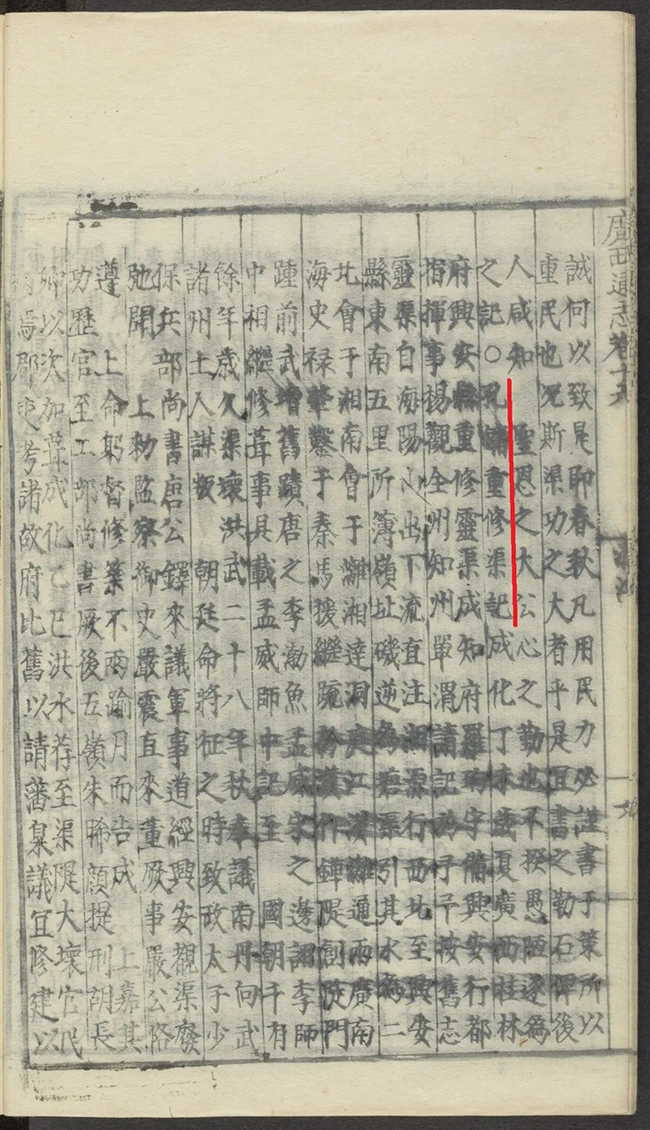 廣西通志卷十六
誠何以致是即春秋凡用民力必謹書于策所以
重民也况斯渠功之大者乎是宜書之勤石俾後
人咸知 聖恩之大公心之勤也不揆愚陋遂為
之記○孔鏞重修渠記成化丁未歲夏廣西桂林
府興安縣重修靈渠成知府羅珦字備興安行都
指揮事楊觀全州知州單渭請記於予予按舊志
靈渠自海陽山出下流直注湘源行西北至興安
縣東南五里所簿嶺址磯逆為瀦渠引其水為二
北會于湘南會于灕湘達洞庭江漢灕通兩廣南
海史禄肇鑿于秦馬援繼疏於漢作鏵隄創陡門
踵前武增舊蹟唐之李渤魚孟威宋之邊詡李師
中相繼修葺事具載孟威師中記至 國朝千有
餘年歲久渠壞洪武二十八年秋奉議南丹向武
諸州土人謀叛 朝廷命將征之時致政太子少
保兵部尚書唐公鐸來議軍事道經興安觀渠廢
弛聞 上勑監察御史嚴震直來董厥事嚴公降
遵 上命躬督修築不兩踰月而告成 上嘉其
功歷官至工部尚書厥後五嶺朱晞顔提刑胡長
卿以次加葺成化乙巳洪水荐至渠隄大壞官民
焉郡吏考諸故府比舊以請藩臬議宜修建以